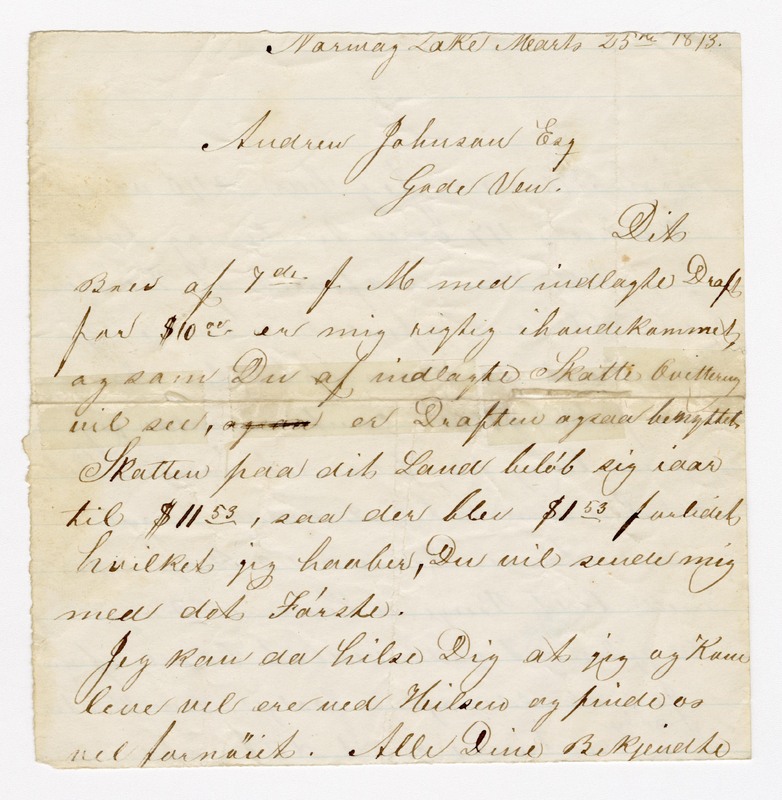 Norway Lake Marts 25de 1873.
Andrew Johnson Esq
Gode Ven.
Dit
Brev af 7de f. M med indlagte Draft
for $10 00 er mig rigtig ihændekommet,
og som Du af indlagte Skatte Qvittering
vil see, er Draften ogsaa benyttet
Skatten paa dit Land beløb sig iaar
til $11 53, saa der blev $1 53 forlidet
hvilket jeg haaber, Du vil sende mig
med det Første.
Jeg kan da hilse Dig at jeg og Kone
leve vel ere ved Heilsen og finde os
vel fornøiet. Alle Dine Bekjendte